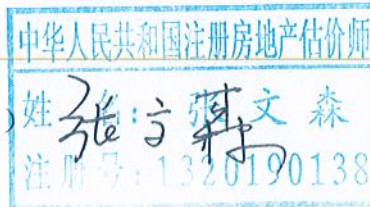 中华人民共和国注册房地产估价师
姓名:张文森
张文森
注册号:1320190138